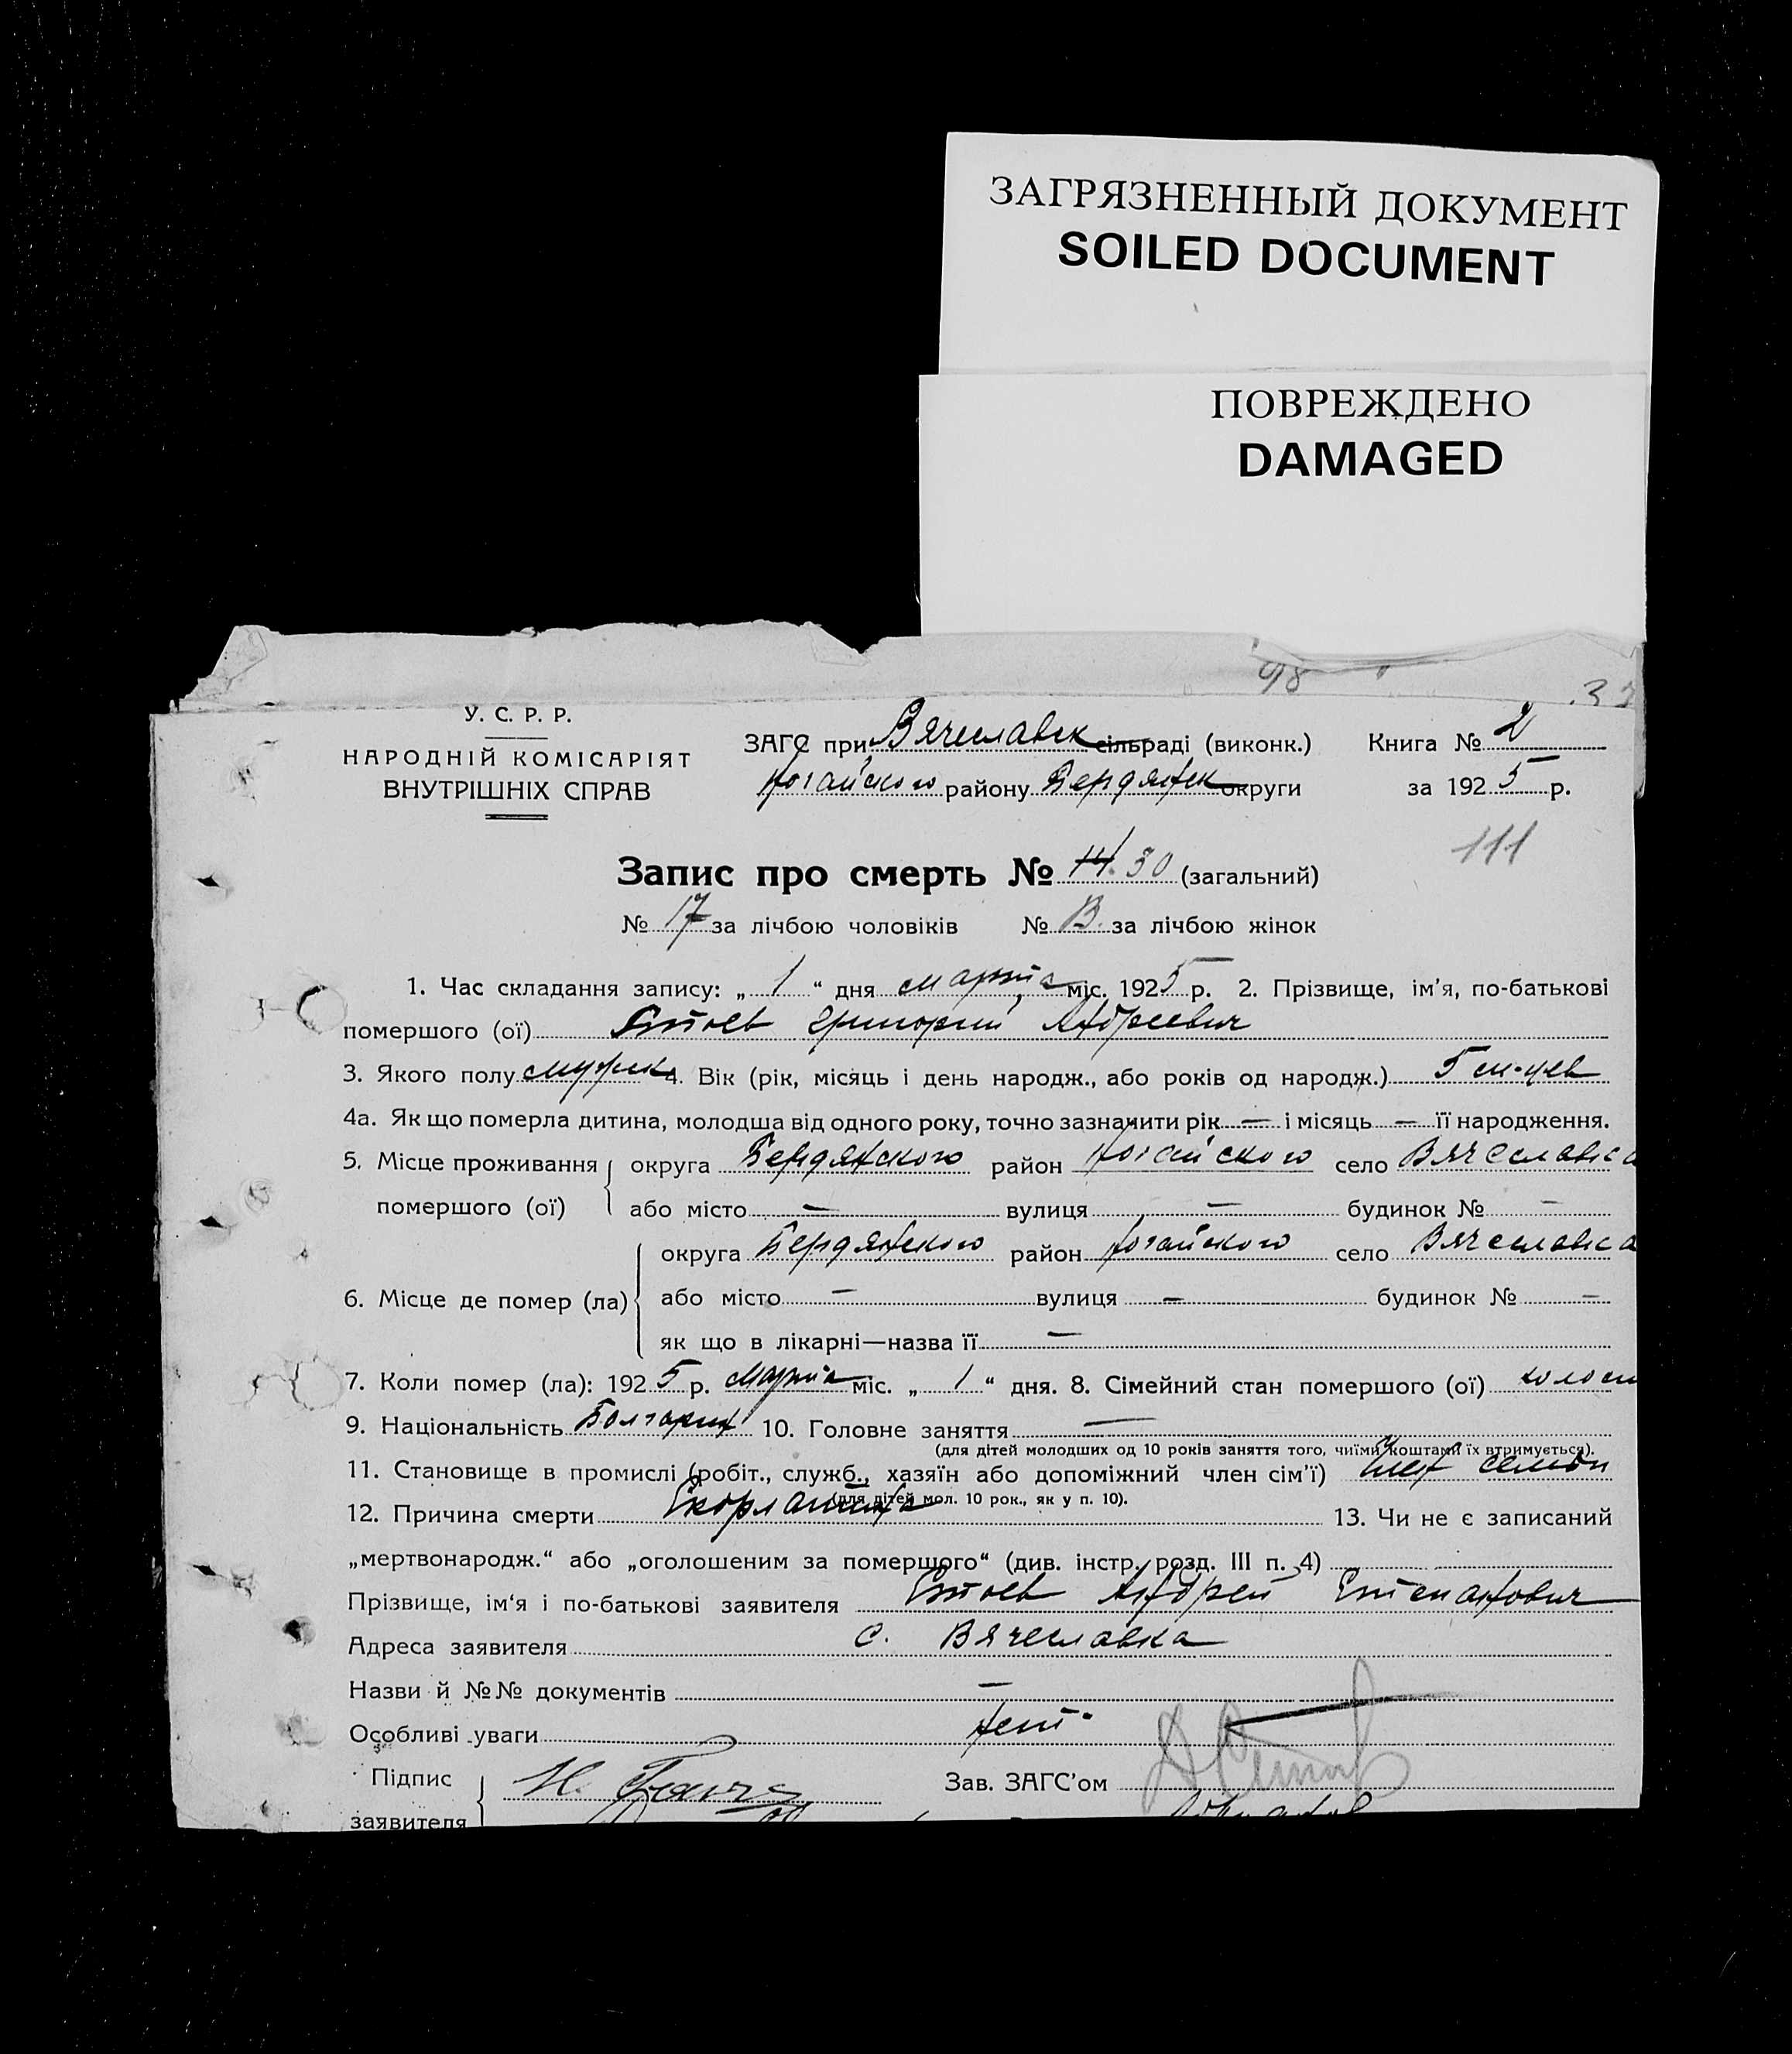 ЗАГРЯЗНЕННЫЙ ДОКУМЕНТ
SOILED DOCUMENT
ПОВРЕЖДЕНО
DAMAGED
98
У. С. Р. Р.
НАРОДНІЙ КОМІСАРІЯТ
ВНУТРІШНІХ СПРАВ
ЗАГС при Вячеславск сільраді (виконк.) Книга № 2
Ногайского району Бердянск округи за 1925 р.
111
Запис про смерть № 14. 30 (загальний)
№ 17 за лічбою чоловіків № 13. за лічбою жінок
1. Час складання запису: „ 1 “ дня марта міс. 1925 р. 2. Прізвище, ім'я, по-батькові
помершого (ої) Григорий Андреевич
3. Якого полу мужск 4. Вік (рік, місяць і день народж., або років од народж.) 5 м-цев
4а. Як що померла дитина, молодша від одного року, точно зазначити рік — і місяць — її народження.
5. Місце проживання округа Бердянского район Ногайского село Вячеславка
помершого (ої) або місто — вулиця — будинок № —
округа Бердянского район Ногайского село Вячеславка
6. Місце де помер (ла) або місто — вулиця — будинок № —
як що в лікарні—назва її —
7. Коли помер (ла): 1925 р. Марта міс. „ 1 “ дня. 8. Сімейний стан помершого (ої) холост
9. Національність Болгарин 10. Головне заняття —
(для дітей молодших од 10 років заняття того, чиїми коштами їх втримується).
11. Становище в промислі (робіт., служб., хазяїн або допоміжний член сім'ї) член семьи
(для дітей мол. 10 рок., як у п. 10).
12. Причина смерти Скорлатина 13. Чи не є записаний
„мертвонародж.“ або „оголошеним за померщого“ (див. інстр. розд. III п. 4)
Прізвище, ім'я і по-батькові заявителя Андрей Степанович
Адреса заявителя с. Вячеславка
Назви й №№ документів —
Особливі уваги нет
Підпис Зав. ЗАГС'ом
заявителя